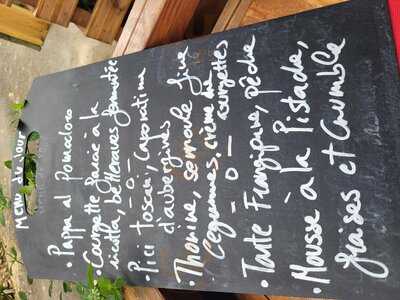 Menu du jour
• Pappa al Pomodoro
• Courgette farcie à la
ricotta, betteraves fermentées
- o -
• Pici toscani, Caponatina
d'aubergines
• Thonine, semoule fine
légumes, crème de
courgettes
- o -
• Tarte Frangipane, pêche
• Mousse à la Pistache,
fraises et Crumble